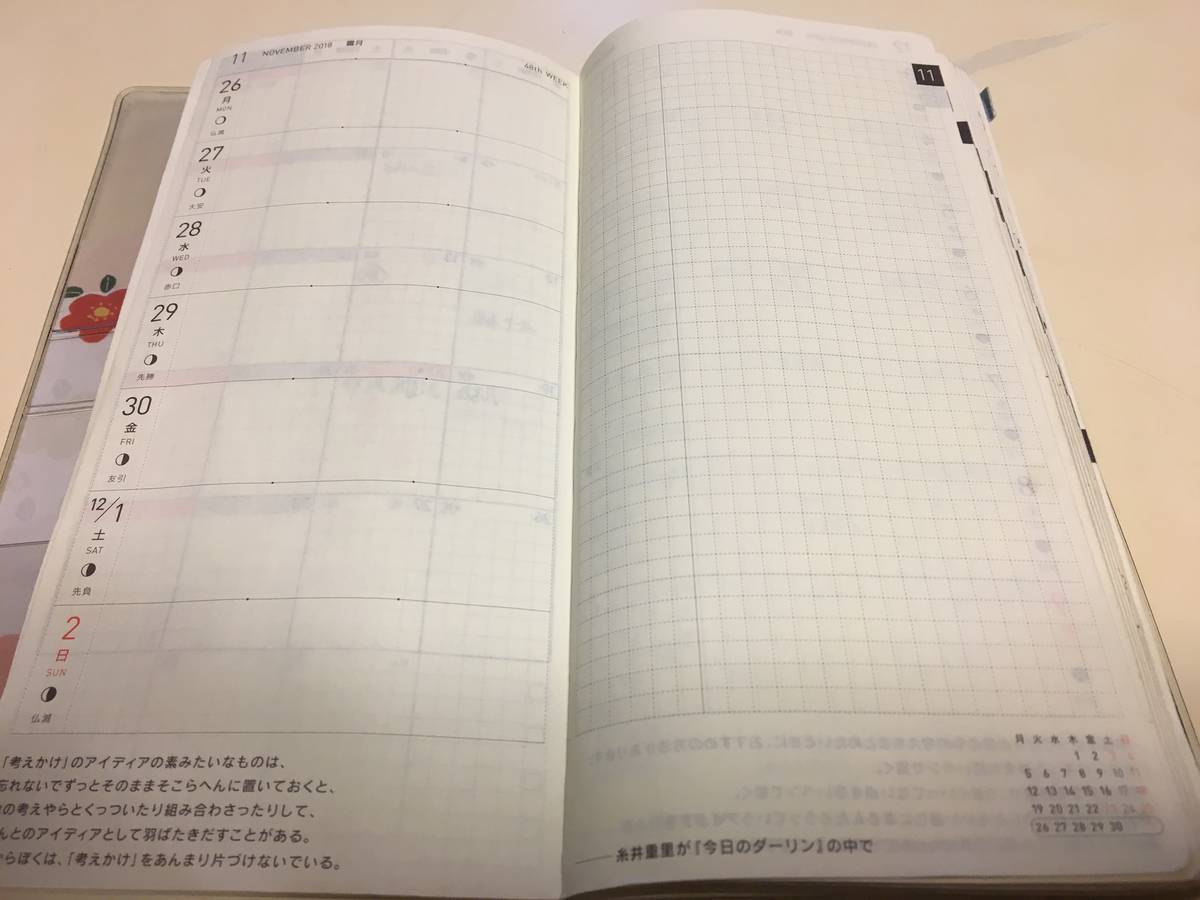 11 NOVEMBER 2018 霜月
48th WEEK
26
月
MON
仏滅
27
火
TUE
大安
28
水
WED
赤口
29
木
THU
先勝
30
金
FRI
友引
12/1
土
SAT
先負
2
日
SUN
仏滅
「考えかけ」のアイディアの素みたいなものは、
忘れないでずっとそのままそこらへんに置いておくと、
の考えやらとくっついたり組み合わさったりして、
んとのアイディアとして羽ばたきだすことがある。
からぼくは、「考えかけ」をあんまり片づけないでいる。
11
月 火 水 木 金 土 日
1 2 3 4
5 6 7 8 9 10 11
12 13 14 15 16 17 18
19 20 21 22 23 24 25
26 27 28 29 30
——糸井重里が『今日のダーリン』の中で